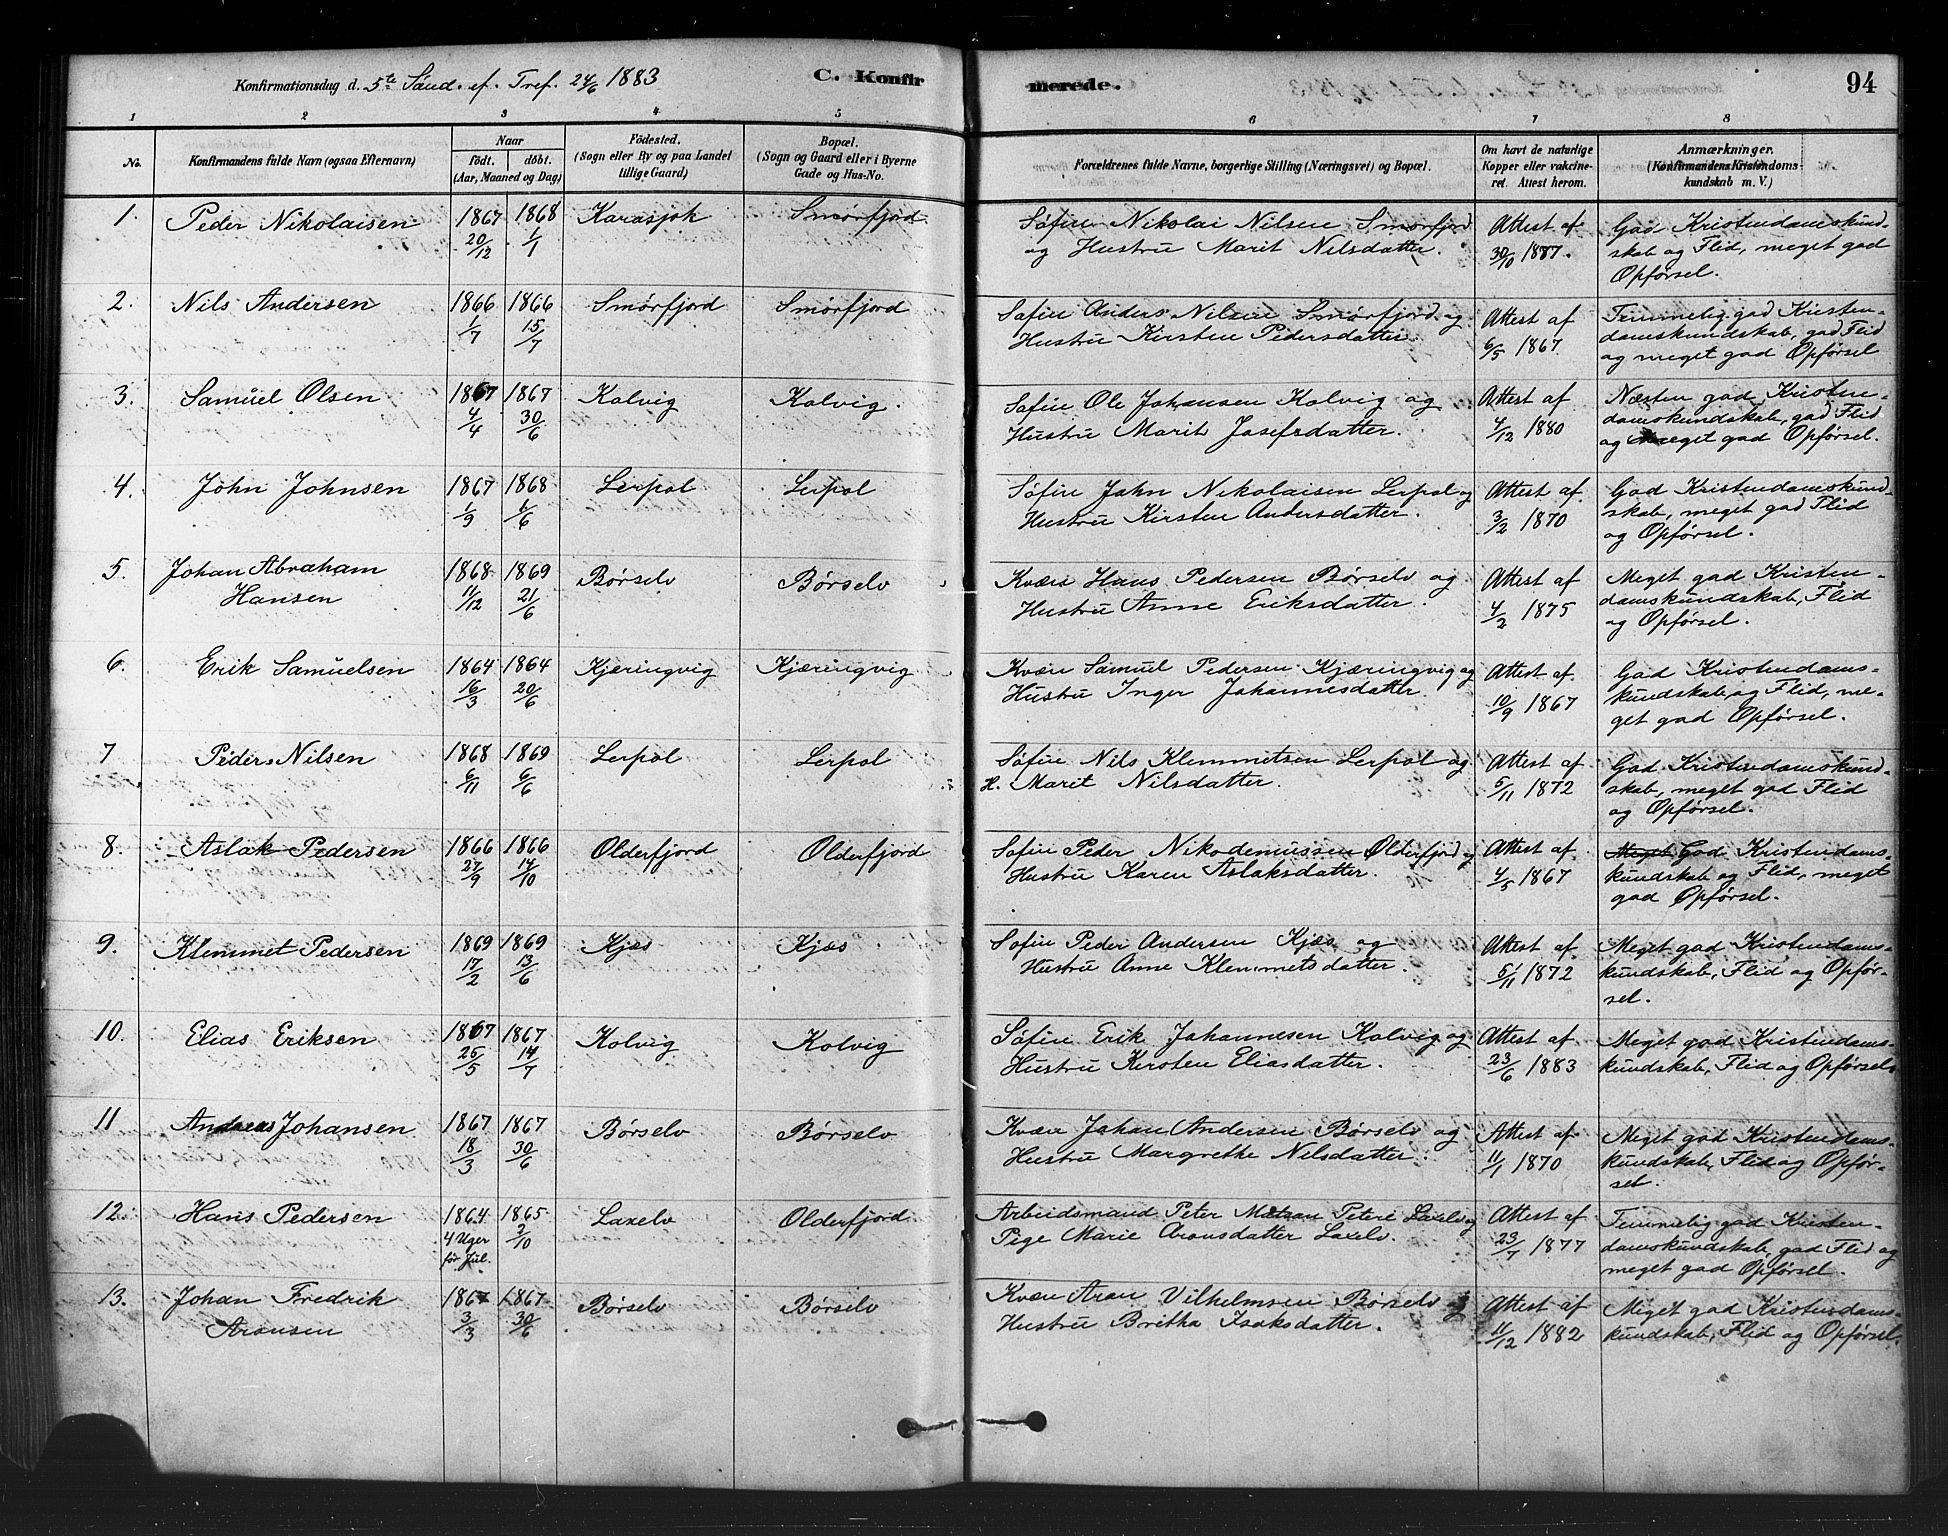 Konfirmationsdag d. 5te Sönd. ef. Tref. 24/6 1883
C. Konfirmerede.
94
1 2 3 4 5 6 7 8
No.
Konfirmandens fulde Navn (ogsaa Efternavn)
Naar
födt. döbt.
(Aar, Maaned og Dag)
Födested.
(Sogn eller By og paa Landet
tillige Gaard)
Bopæl.
(Sogn og Gaard eller i Byerne
Gade og Hus-No.
Forældrenes fulde Navne, borgerlige Stilling (Næringsvei) og Bopæl.
Om havt de naturlige
Kopper eller vakcine-
ret. Attest herom.
Anmærkninger.
(Konfirmandens Kristendoms-
kundskab m. V.)
1. Peder Nikolaisen 1867 20/12 1868 1/1 Karasjok Smørfjord
Søfin Nikolai Nilsen Smørfjord
og Hustru Marit Nilsdatter.
Attest af
30/10 1877.
God Kristendomskund-
skab og Flid, meget god
Opførsel.
2. Nils Andersen 1866 1/7 1866 15/7 Smørfjord Smørfjord
Søfin Anders Nilsen Smørfjord og
Hustru Kirsten Pedersdatter.
Attest af
6/5 1867.
Temmelig god Kristen-
domskundskab, god Flid
og meget god Opførsel
3. Samuel Olsen 1867 4/4 1867 30/6 Kolvig Kolvig.
Søfin Ole Johansen Kolvig og
Hustru Marit Josefsdatter.
Attest af
4/12 1880
Næsten god Kristen-
domskundskab, god Flid
og meget god Opførsel.
4. John Johnsen 1867 1/9 1868 6/6 Lerpol Lerpol
Søfin John Nikolaisen Lerpol og
Hustru Kirsten Andersdatter.
Attest af
3/2 1870
God Kristendomskund-
skab, meget god Flid
og Opførsel.
5. Johan Abraham
Hansen 1868 11/12 1869 21/6 Børselv Børselv
Kvæn Hans Pedersen Børselv og
Hustru Anne Eriksdatter.
Attest af
4/2 1875
Meget god Kristen-
domskundskab, Flid
og Opførsel.
6. Erik Samuelsen 1864 16/3 1864 20/6 Kjæringvig Kjæringvig
Kvæn Samuel Pedersen Kjæringvig og
Hustru Inger Johannesdatter.
Attest af
10/9 1867
God Kristendoms-
kundskab og Flid, me-
get god Opførsel.
7 Peder Nilsen 1868 6/11 1869 6/6 Lerpol Lerpol
Søfin Nils Klemmetsen Lerpol og
H. Marit Nilsdatter.
Attest af
5/11 1872
God Kristendomskund-
skab, meget god Flid
og Opførsel.
8. Aslak Pedersen 1866 27/9 1866 14/10 Olderfjord Olderfjord
Søfin Peder Nikodemussen Olderfjord og
Hustru Karen Aslaksdatter.
Attest af
4/5 1867
Meget God Kristendoms-
kundskab og Flid, meget
god Opførsel.
9. Klemmet Pedersen 1869 17/2 1869 13/6 Kjæs Kjæs
Søfin Peder Andersen Kjæs og
Hustru Anne Klemmetsdatter.
Attest af
5/11 1872
Meget god Kristendoms-
kundskab, Flid og Opfør-
sel.
10. Elias Eriksen 1867 25/5 1867 14/7 Kolvig Kolvig
Søfin Erik Johannesen Kolvig og
Hustru Kirsten Eliasdatter.
Attest af
23/6 1883
Meget god Kristendoms-
kundskab, Flid og Opførsel.
11 Andreas Johansen 1867 18/3 1867 30/6 Børselv Børselv
Kvæn Johan Andersen Børselv og
Hustru Margrethe Nilsdatter.
Attest af
11/1 1870
Meget god Kristendoms-
kundskab, Flid og Opfør-
sel.
12. Hans Pedersen 1864 4 Uger før Jul. 1865 2/10 Laxelv Olderfjord.
Arbeidsmand Peter Matsan Peteri Laxelv og
Pige Marie Aronsdatter Laxelv.
Attest af
23/7 1877
Temmelig god Kristen-
domskundskab, god Flid og
meget god Opførsel.
13. Johan Fredrik
Aronsen 1867 3/3 1867 30/6 Børselv Børselv
Kvæn Aron Vilhelmsen Børselv og
Hustru Britha Isaksdatter.
Attest af
11/12 1882
Meget god Kristendoms-
kundskab, Flid og Opførsel.